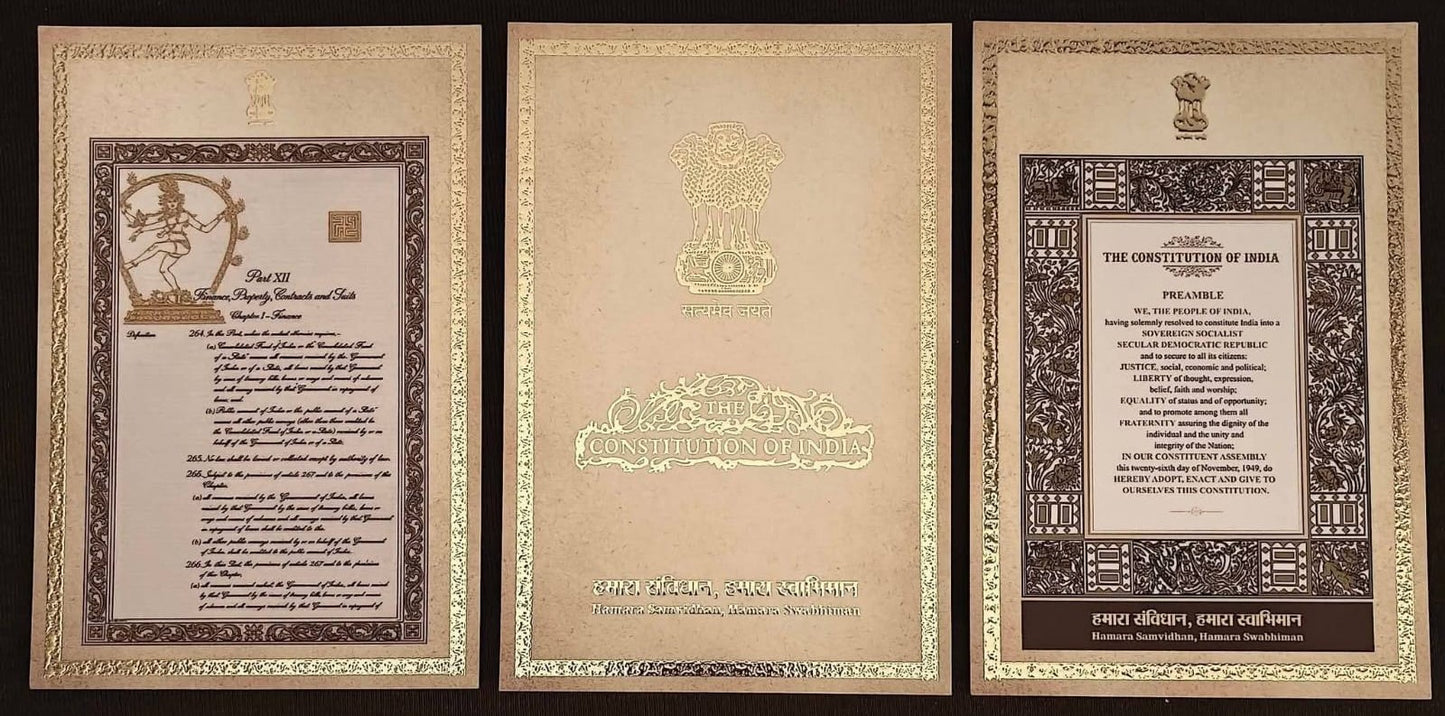 Part XII
Finance, Property, Contracts and Suits
Chapter I – Finance
Definition
264. In this Part, unless the context otherwise requires,–
(a) Consolidated Fund of India or the Consolidated Fund
of a State means all revenues received by the Government
of India or of a State, all loans raised by that Government
by issue of treasury bills, loans or ways and means of advances
and all money received by that Government in repayment of
loans; and
(b) Public account of India or the public account of a State
means all other public moneys
the Consolidated Fund of India or a State) received by or on
behalf of the Government of India or of a State.
265. No tax shall be levied or collected except by authority of law.
266. Subject to the provisions of article 267 and to the provisions of this
Chapter,
(a) all revenues received by the Government of India, all loans
raised by that Government by the issue of treasury bills, loans or
ways and means of advances and all moneys received by that Government
in repayment of loans shall be
(b) all other public moneys received by or on behalf of the Government
of India shall be credited to the public account of India.
266. In this Part, the provisions of article 267 and to the provisions
of this Chapter,
(a) all revenues the Government of India, all loans raised
by that Government by the issue of treasury bills, loans or ways and means
of advances and all moneys received by that Government in repayment of
सत्यमेव जयते
THE
CONSTITUTION OF INDIA
हमारा संविधान, हमारा स्वाभिमान
Hamara Samvidhan, Hamara Swabhiman
THE CONSTITUTION OF INDIA
PREAMBLE
WE, THE PEOPLE OF INDIA,
having solemnly resolved to constitute India into a
SOVEREIGN SOCIALIST
SECULAR DEMOCRATIC REPUBLIC
and to secure to all its citizens:
JUSTICE, social, economic and political;
LIBERTY of thought, expression,
belief, faith and worship;
EQUALITY of status and of opportunity;
and to promote among them all
FRATERNITY assuring the dignity of the
individual and the unity and
integrity of the Nation;
IN OUR CONSTITUENT ASSEMBLY
this twenty-sixth day of November, 1949, do
HEREBY ADOPT, ENACT AND GIVE TO
OURSELVES THIS CONSTITUTION.
हमारा संविधान, हमारा स्वाभिमान
Hamara Samvidhan, Hamara Swabhiman